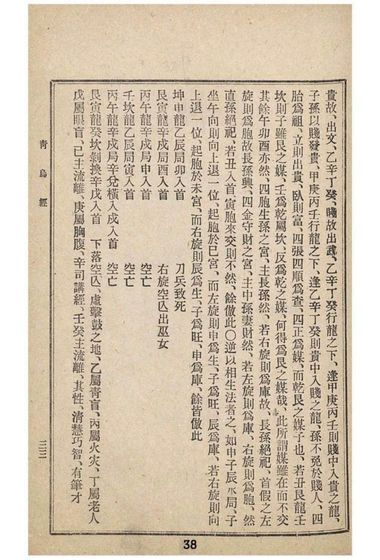 貴故、出文、乙辛丁癸、賤故出武、乙辛丁癸行龍之下、逢甲庚丙壬則賤中入貴之龍、
子孫以賤發貴、甲庚丙壬行龍之下、逢乙辛丁癸則貴中入賤之龍、孫不免於賤人、四
胎爲祖、立則出貴、臥則富、四張四順爲査、四正爲媒、而乾艮之媒子也、若丑艮龍壬
坎則子雖艮之媒、壬爲乾屬坎、反爲乾之媒、何得爲艮之媒哉、此所謂媒雖在而不交
其餘午卯酉亦然、四胞生孫之宮、主長孫然、若右旋則爲庫故、長孫絕祀、首假之左
旋則爲胞故長孫興、四金守財之宮、主中孫妻財然、若左旋則爲庫、右旋則爲胞、然
直孫絕祀、若丑入首、寅胞來交則不然、餘倣此〇逆以相生法者之、如申子辰水局、子
坐午向則向上退一位、起胞於巳宮、而左旋則申爲生、子爲旺、辰爲庫、若右旋則向
上退一位、起胞於未宮、而右旋則辰爲生、子爲旺、申爲庫、餘皆倣此
坤申龍乙辰局卯入首 刀兵致死
艮寅龍辛戌局酉入首 右旋空亡出巫女
丙午龍辛戌局申入首 空亡
壬坎龍乙辰局寅入首 空亡
丙午龍辛戌局辛兌橫入戌入首 空亡
艮寅龍癸坎剝換辛戌入首 下落空亡、處擊鼓之地、乙屬靑盲、丙屬火灾、丁屬老人
戊屬眼盲、己主流離、庚屬胸腹、辛司講經、壬癸主流離、其性 淸慧巧智、有筆才
靑烏經
三三
38